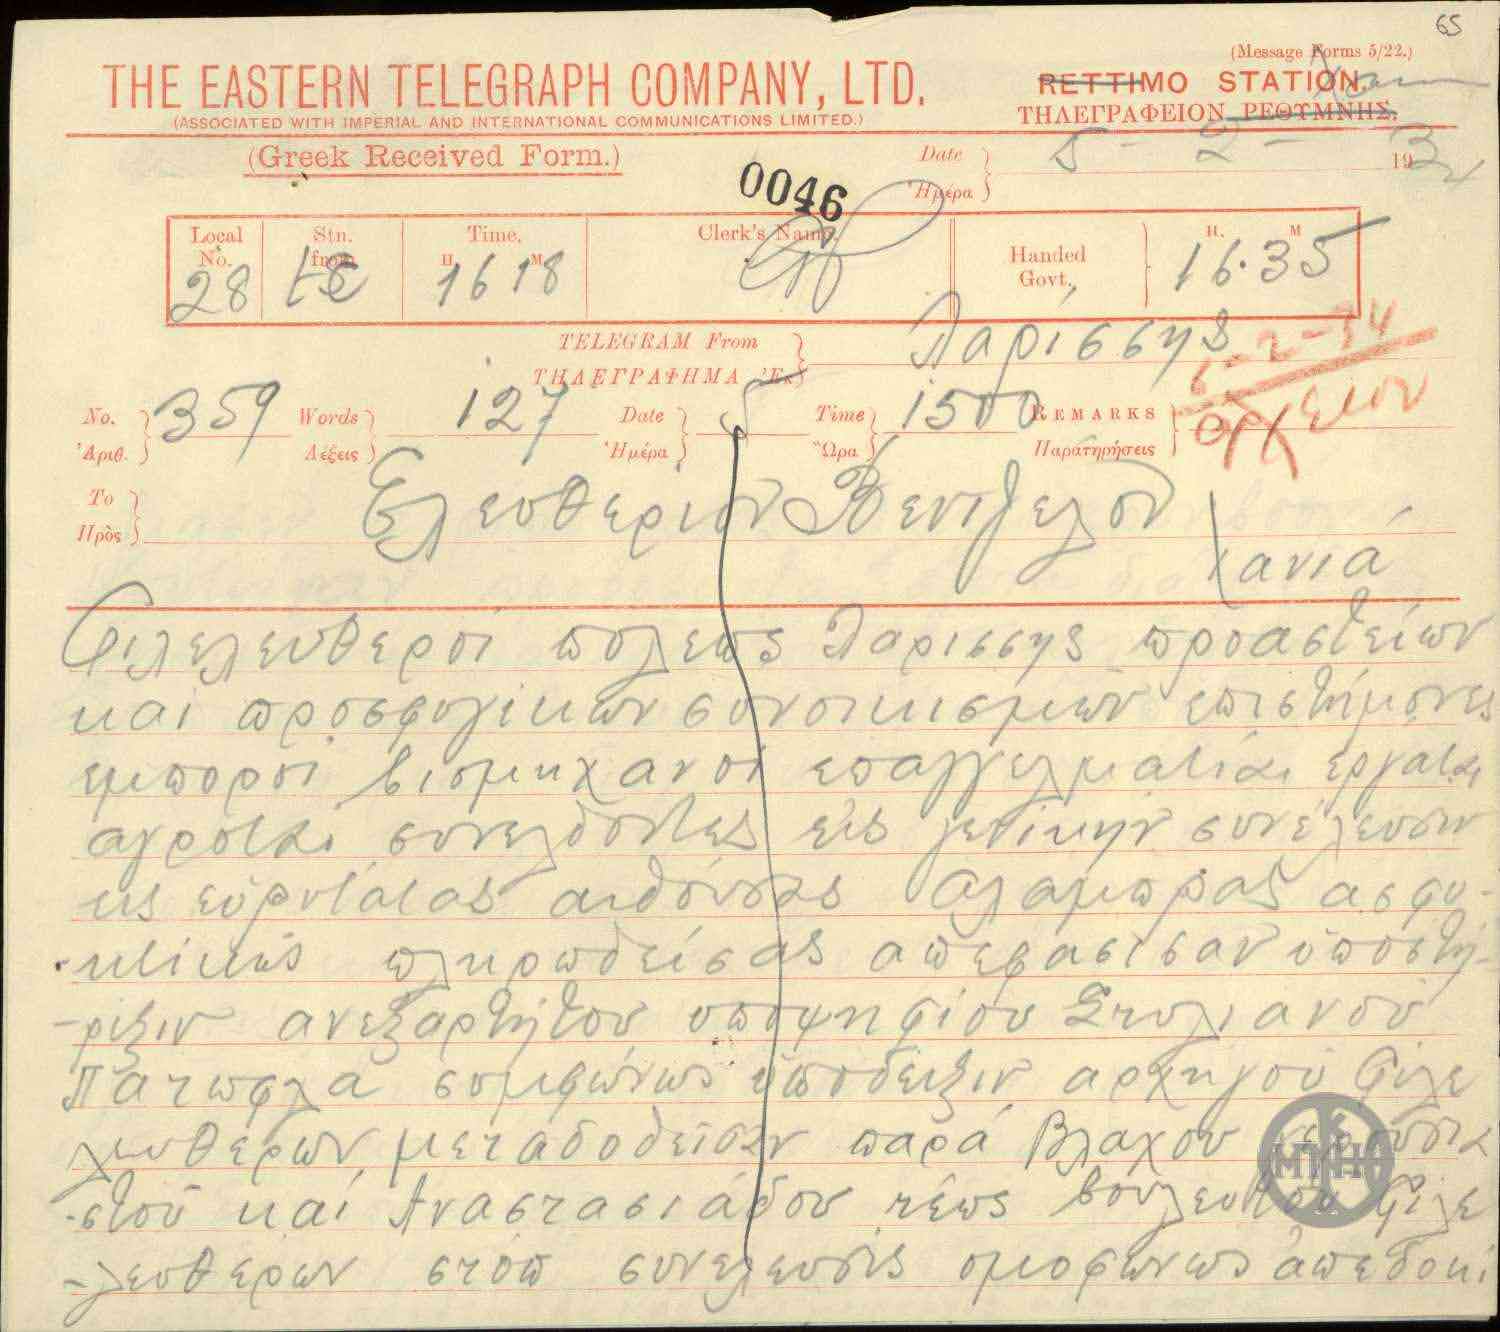 65
(Message Forms 5/22.)
THE EASTERN TELEGRAPH COMPANY, LTD.
RETTIMO STATION
(ASSOCIATED WITH IMPERIAL AND INTERNATIONAL COMMUNICATIONS LIMITED.)
ΤΗΛΕΓΡΑΦΕΙΟΝ ΡΕΘΥΜΝΗΣ.
(Greek Received Form.)
Date
Ἡμέρα
5-2-1934
0046
Local No.
Stn. from
Time,
H. M.
Clerk's Name.
Handed Govt.,
H. M
28
1618
16.35
TELEGRAM From
ΤΗΛΕΓΡΑΦΗΜΑ Ἐκ
Λαρίσσης
6-2-34
Αρχείον
No.
Ἀριθ.
359
Words
Λέξεις
127
Date
Ἡμέρα
5
Time
Ὥρα
1500
REMARKS
Παρατηρήσεις
To
Πρὸς
Ελευθεριον Βενιζελον
Χανιά
Φιλελευθεροί πολεως Λαρισσης προαστείων
και προσφυγικων συνοικισμων επιστήμονες
εμποροι βιομηχανοι επαγγελματιαι εργαται
αγροται συνελθοντες εις γενικην συνέλευσιν
εις ευρυτατας αιθούσας Αλαμπρας ασφυ-
-κτικώς πληρωθείσας απεφασισαν υποστή-
-ριξιν ανεξαρτήτου υποψηφίου Στυλιανού
Πατωφλα συμφώνως υποδειξιν αρχηγού Φιλε
λευθερων μεταδοθεισαν παρά Βλαχου
-στού και Αναστασιάδου τέως βουλευτου Φιλε
-λευθερων στοπ συνελευσις ομοφωνως απεδοκί
ΜΠΝΗ